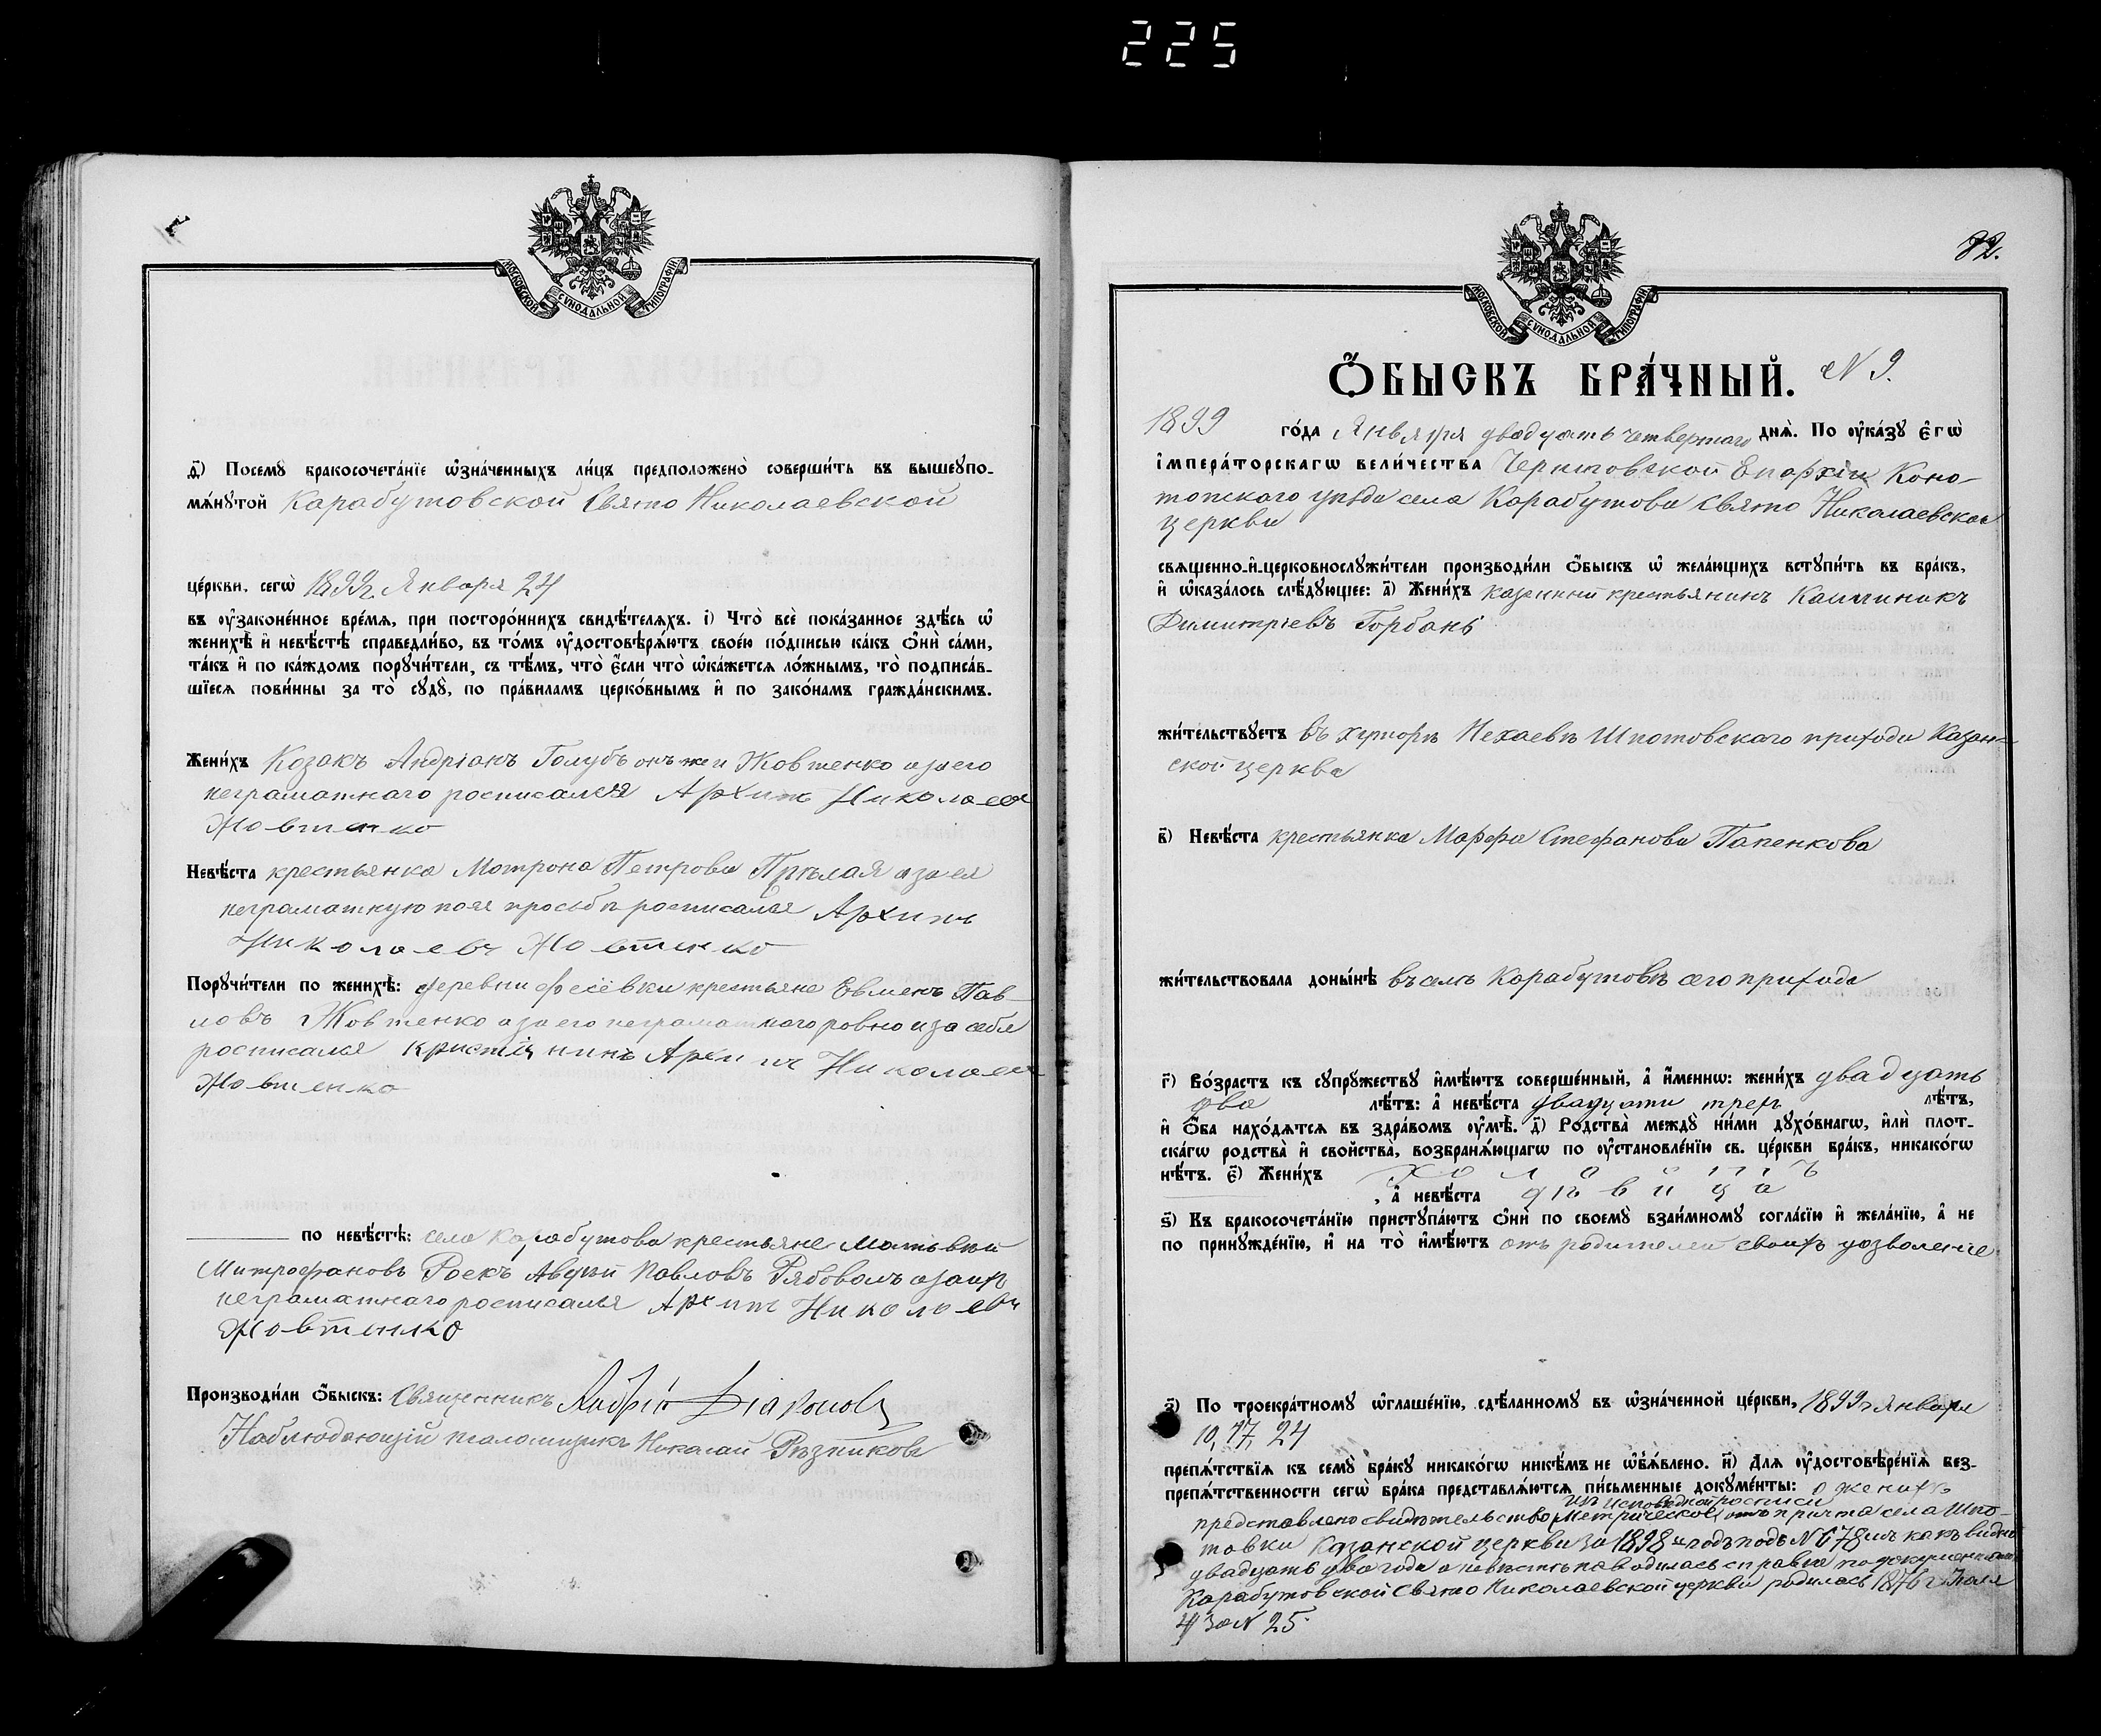 225
МОСКОВСКОЙ СѴНОДАЛЬНОЙ ТИПОГРАФІИ
ѳ҃) Посемꙋ бракосочета́нїе ѡ҆зна́ченныхъ ли́цъ предположено̀ соверши́ть въ вышеупо-
мѧ́нꙋтой Карабутовской Свято Николаевской
це́ркви. сегѡ̀ 1899 г. Января 24
въ ᲂу҆зако́ненное вре́мѧ, при посторо́ннихъ свидѣ́телѧхъ. і҃) Что̀ всѐ пока́занное здѣ́сь ѡ҆
женихѣ̀ и҆ невѣ́стѣ справедли́во, въ то́мъ ᲂу҆достовѣрѧ́ютъ свое́ю по́дписью ка́къ ѻ҆нѝ са́ми,
та́къ и҆ по ка́ждомъ порꙋчи́тели, съ тѣ́мъ, что̀ є҆́сли что̀ ѡ҆ка́жетсѧ ло́жнымъ, то̀ подписа́в-
шїесѧ пови́нны за то̀ сꙋдꙋ̀, по пра́виламъ церко́внымъ и҆ по зако́намъ гражда́нскимъ.
Жени́хъ Козакъ Андріанъ Голубъ онъ же и Жовтенко а за его
неграматнаго росписался Архипъ Николаев
Жовтенко
Невѣ́ста крестьянка Мотрона Петрова Прѣлая а за ея
неграматную по ея просьбѣ росписался Архипъ
Николаевъ Жовтенко
Порꙋчи́тели по женихѣ̀: деревни Фесевки крестьяне Евменъ Пав-
ловъ Жовтенко а за его неграматнаго ровно и за себя
росписался кристіянинъ Архипъ Николаев
Жовтенко
по невѣ́стѣ: села Карабутова крестьяне Матвѣй
Митрофановъ Роекъ Аверкій Павловъ Рябовалъ а за ихъ
неграматнаго росписался Архипъ Николаевъ
Жовтенко
Производи́ли ѻ҆́быскъ: Священникъ Андрій Діаконовъ
Наблюдающій псаломщикъ Николай Рѣзниковъ
82.
МОСКОВСКОЙ СѴНОДАЛЬНОЙ ТИПОГРАФІИ
Ѻ҆́БЫСКЪ БРА́ЧНЫЙ. N 9.
1899 го́да Января двадцать четвертаго днѧ̀. По ᲂу҆ка́зꙋ є҆гѡ̀
і҆мпера́торскагѡ вели́чества Черниговской Епархіи Коно-
топскаго уѣзда села Карабутова Свято Николаевской
церкви
свѧщенно-и҆-церковнослꙋжи́тели производи́ли ѻ҆́быскъ ѡ҆ жела́ющихъ встꙋпи́ть въ бра́къ,
и҆ ѡ҆каза́лось слѣ́дꙋющее: а҃) Жени́хъ казенный крестьянинъ Калиникъ
Димитріевъ Горбань
жи́тельствꙋетъ въ хуторѣ Нехаевкѣ Шпотовскаго прихода Казан-
ской церкви
в҃) Невѣ́ста крестьянка Марфа Стефанова Папенкова
жи́тельствовала доны́нѣ въ селѣ Карабутовѣ сего прихода
г҃) Во́зрастъ къ сꙋпрꙋ́жествꙋ и҆мѣ́ютъ соверше́нный, а҆ и҆́меннѡ: жени́хъ двадцать
два лѣ́тъ: а҆ невѣ́ста двадцати трехъ лѣ́тъ,
и҆ ѻ҆́ба нахо́дѧтсѧ въ здра́вомъ ᲂу҆мѣ̀. д҃) Родства̀ междꙋ̀ ни́ми дꙋхо́внагѡ, и҆лѝ плот-
ска́гѡ родства̀ и҆ свойства̀, возбранѧ́ющагѡ по ᲂу҆становле́нїю св. це́ркви бра́къ, никако́гѡ
нѣ́тъ. є҃) Жени́хъ холостъ
, а҆ невѣ́ста дѣвица
ѕ҃) Къ бракосочета́нїю пристꙋпа́ютъ ѻ҆нѝ по своемꙋ̀ взаи́мномꙋ согла́сїю и҆ жела́нїю, а҆ не
по принꙋжде́нїю, и҆ на то̀ и҆мѣ́ютъ отъ родителей своихъ дозволеніе
з҃) По троекра́тномꙋ ѡ҆глаше́нїю, сдѣ́ланномꙋ въ ѡ҆зна́ченной це́ркви, 1899 г. Января
10, 17, 24
препѧ́тствїѧ къ семꙋ̀ бра́кꙋ никако́гѡ никѣ́мъ не ѡ҆б̾ѧ́влено. и҃) Длѧ ᲂу҆достовѣре́нїѧ без-
препѧ́тственности сегѡ̀ бра́ка представлѧ́ютсѧ пи́сьменные докꙋме́нты: о женихѣ
изъ исповѣдной росписи
представлено свидѣтельство Метрическое отъ причта села Шпо-
товки Казанской церкви за 1898 й годъ подъ N 678 изъ какъ видно
двадцать два года о невѣстѣ наводилась справка по документамъ
Карабутовской Свято Николаевской церкви родилась 1876 г. Іюля
4 за N 25.